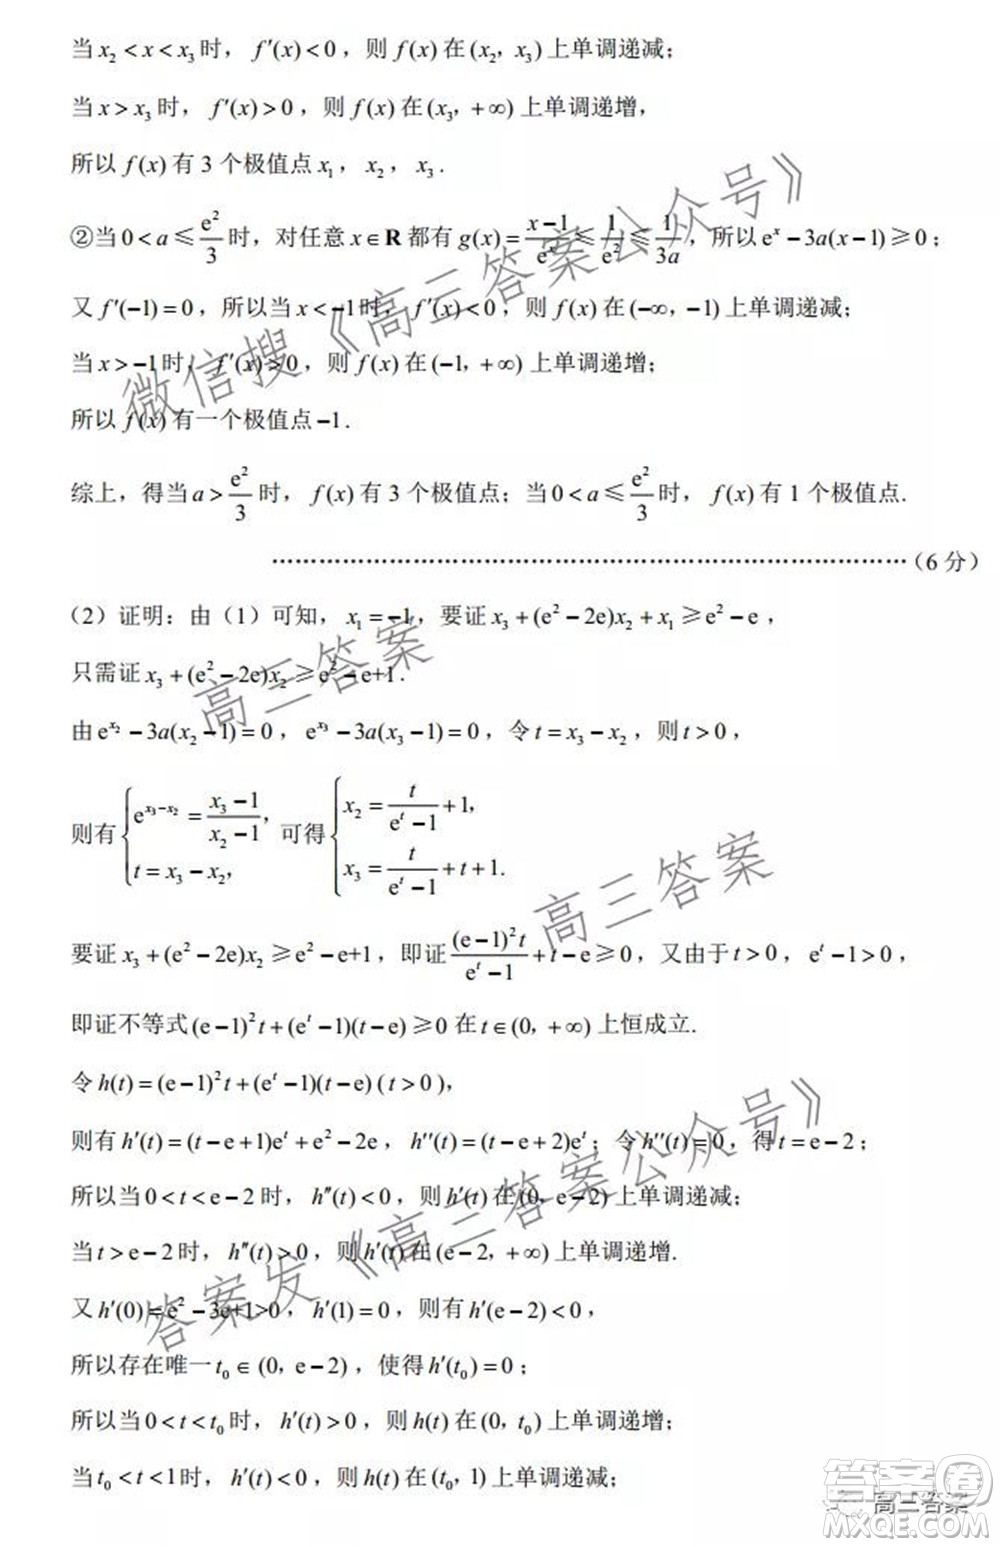 当 x₂ < x < x₃ 时， f′(x) < 0，则 f(x) 在 (x₂，x₃) 上单调递减；
当 x > x₃ 时， f′(x) > 0，则 f(x) 在 (x₃，+∞) 上单调递增，
所以 f(x) 有 3 个极值点 x₁， x₂， x₃．
②当 0 < a ≤ e²/3 时，对任意 x∈R 都有 g(x) = (x−1)/eˣ ≤ 1/e² ≤ 1/(3a)，所以 eˣ − 3a(x−1) ≥ 0；
又 f′(−1) = 0，所以当 x < −1 时， f′(x) < 0，则 f(x) 在 (−∞，−1) 上单调递减；
当 x > −1 时， f′(x) > 0，则 f(x) 在 (−1，+∞) 上单调递增；
所以 f(x) 有一个极值点 −1．
综上，得当 a > e²/3 时， f(x) 有 3 个极值点；当 0 < a ≤ e²/3 时， f(x) 有 1 个极值点.
……………………………………………………………………（6 分）
（2）证明：由（1）可知， x₁ = −1，要证 x₃ + (e² − 2e)x₂ + x₁ ≥ e² − e，
只需证 x₃ + (e² − 2e)x₂ ≥ e² − e+1．
由 e^(x₂) − 3a(x₂ − 1) = 0， e^(x₃) − 3a(x₃ − 1) = 0，令 t = x₃ − x₂，则 t > 0，
则有 { e^(x₃−x₂) = (x₃−1)/(x₂−1)， t = x₃ − x₂， 可得 { x₂ = t/(eᵗ−1) + 1， x₃ = t/(eᵗ−1) + t + 1.
要证 x₃ + (e² − 2e)x₂ ≥ e² − e+1，即证 (e−1)²t/(eᵗ−1) + t − e ≥ 0，又由于 t > 0， eᵗ − 1 > 0，
即证不等式 (e−1)²t + (eᵗ−1)(t−e) ≥ 0 在 t∈(0，+∞) 上恒成立.
令 h(t) = (e−1)²t + (eᵗ−1)(t−e) (t > 0)，
则有 h′(t) = (t−e+1)eᵗ + e² − 2e， h″(t) = (t−e+2)eᵗ；令 h″(t) = 0，得 t = e−2；
所以当 0 < t < e−2 时， h″(t) < 0，则 h′(t) 在 (0，e−2) 上单调递减；
当 t > e−2 时， h″(t) > 0，则 h′(t) 在 (e−2，+∞) 上单调递增.
又 h′(0) = e² − 3e+1>0， h′(1) = 0，则有 h′(e−2) < 0，
所以存在唯一 t₀ ∈ (0，e−2)，使得 h′(t₀) = 0；
所以当 0 < t < t₀ 时， h′(t) > 0，则 h(t) 在 (0，t₀) 上单调递增；
当 t₀ < t < 1 时， h′(t) < 0，则 h(t) 在 (t₀，1) 上单调递减；
微信搜《高三答案公众号》
高三答案
高三答案
答案发《高三答案公众号》
高三答案
答案圈
MXQE.COM